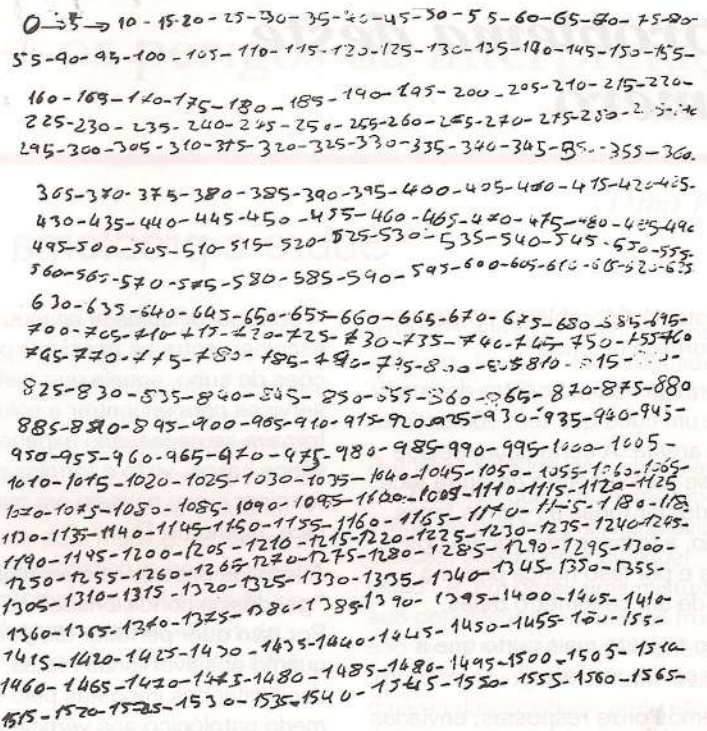 0→5→10-15-20-25-30-35-40-45-50-55-60-65-70-75-80-
55-90-95-100-105-110-115-120-125-130-135-140-145-150-155-
160-165-170-175-180-185-190-195-200-205-210-215-220-
225-230-235-240-245-250-255-260-265-270-275-280-
295-300-305-310-315-320-325-330-335-340-345-350-355-360.
365-370-375-380-385-390-395-400-405-410-415-420-425-
430-435-440-445-450-455-460-465-470-475-480-485-490
495-500-505-510-515-520-525-530-535-540-545-550-555-
560-565-570-575-580-585-590-595-600-605-610-615-620-625
630-635-640-645-650-655-660-665-670-675-680-685-695-
700-705-710-715-720-725-730-735-740-745-750-755-760
765-770-775-780-785-790-795-800-805-810-815-
825-830-835-840-845-850-855-860-865-870-875-880
885-890-895-900-905-910-915-920-925-930-935-940-945-
950-955-960-965-970-975-980-985-990-995-1000-1005-
1010-1015-1020-1025-1030-1035-1040-1045-1050-1055-1060-1065-
1070-1075-1080-1085-1090-1095-1100-1005-1110-1115-1120-1125
1130-1135-1140-1145-1150-1155-1160-1165-1170-1175-1180-118
1190-1195-1200-1205-1210-1215-1220-1225-1230-1235-1240-1245-
1250-1255-1260-1265-1270-1275-1280-1285-1290-1295-1300-
1305-1310-1315-1320-1325-1330-1335-1340-1345-1350-1355-
1360-1365-1370-1375-1380-1385-1390-1395-1400-1405-1410-
1415-1420-1425-1430-1435-1440-1445-1450-1455-150-155-
1460-1465-1470-1475-1480-1485-1486-1495-1500-1505-1510-
1515-1520-1525-1530-1535-1540-1545-1550-1555-1560-1565-